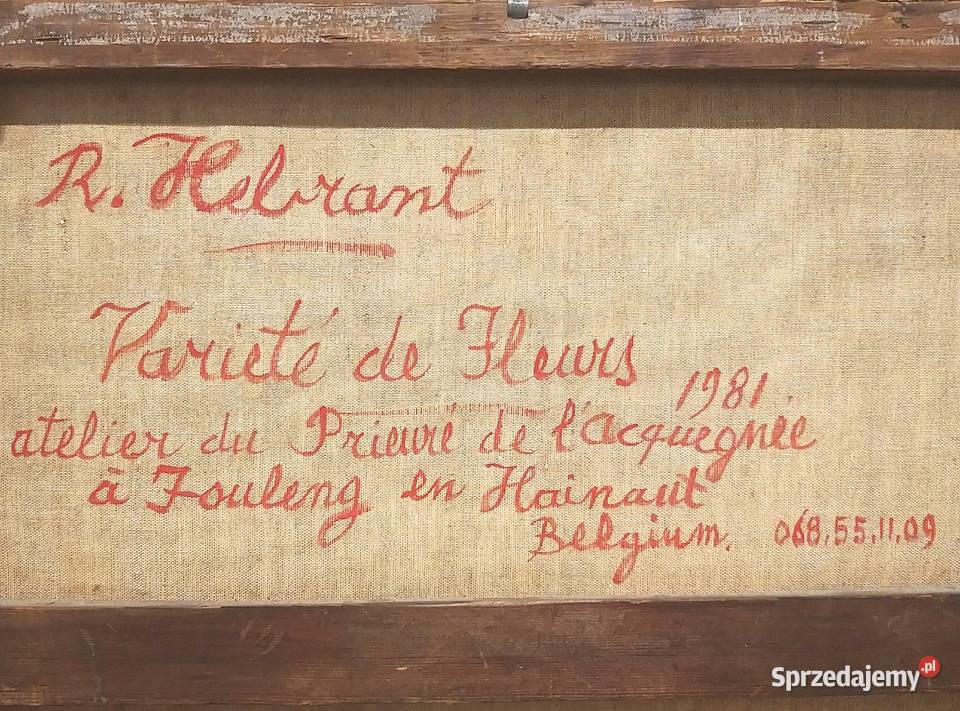 R. Hebrant
Varieté de Fleurs
1981
atelier du Prieuré de l'Acquegnée
à Fouleng en Hainaut
Belgium. 068.55.11.09
Sprzedajemy.pl